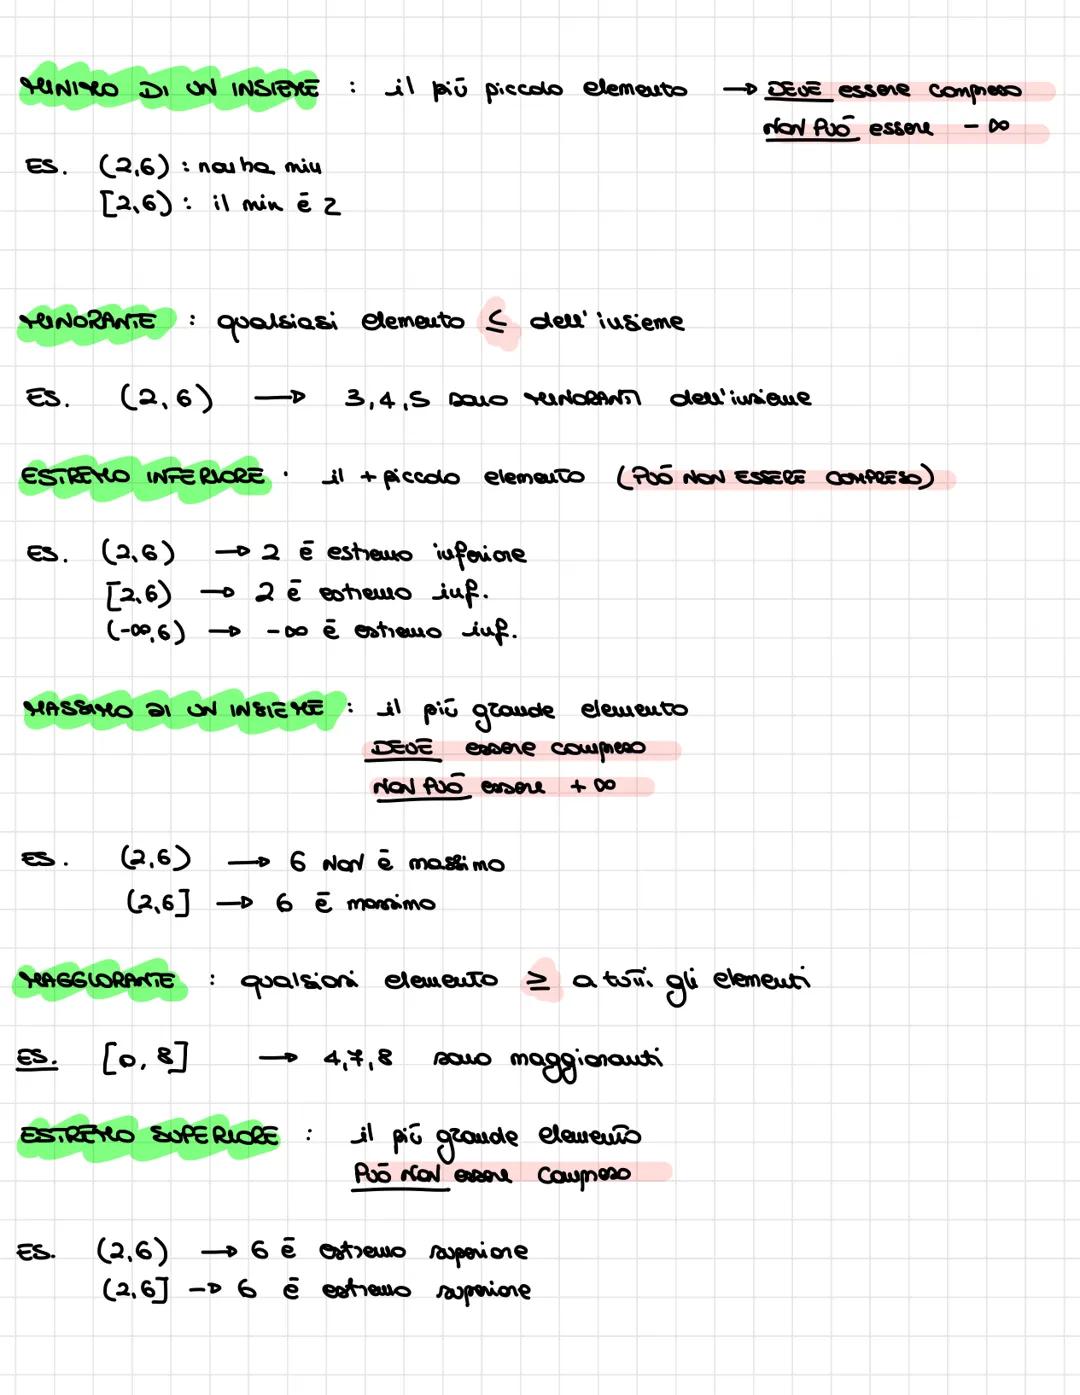 MINIMO DI UN INSIEME : il più piccolo elemento → DEVE essere compreso
NON PUÒ essere - ∞
ES. (2,6) : non ha min
[2,6) : il min è 2
MINORANTE : qualsiasi elemento ≤ dell'insieme
ES. (2,6) → 3,4,5 sono MINORANTI dell'insieme
ESTREMO INFERIORE : il + piccolo elemento (PUÒ NON ESSERE COMPRESO)
ES. (2,6) → 2 è estremo inferiore
[2,6) → 2 è estremo inf.
(-∞,6) → -∞ è estremo inf.
MASSIMO DI UN INSIEME : il più grande elemento
DEVE essere compreso
NON PUÒ essere + ∞
ES. (2,6) → 6 NON è massimo
(2,6] → 6 è massimo
MAGGIORANTE : qualsiasi elemento ≥ a tutti gli elementi
ES. [0,8] → 4,7,8 sono maggioranti
ESTREMO SUPERIORE : il più grande elemento
PUÒ NON essere compreso
ES. (2,6) → 6 è estremo superiore
(2,6] → 6 è estremo superiore